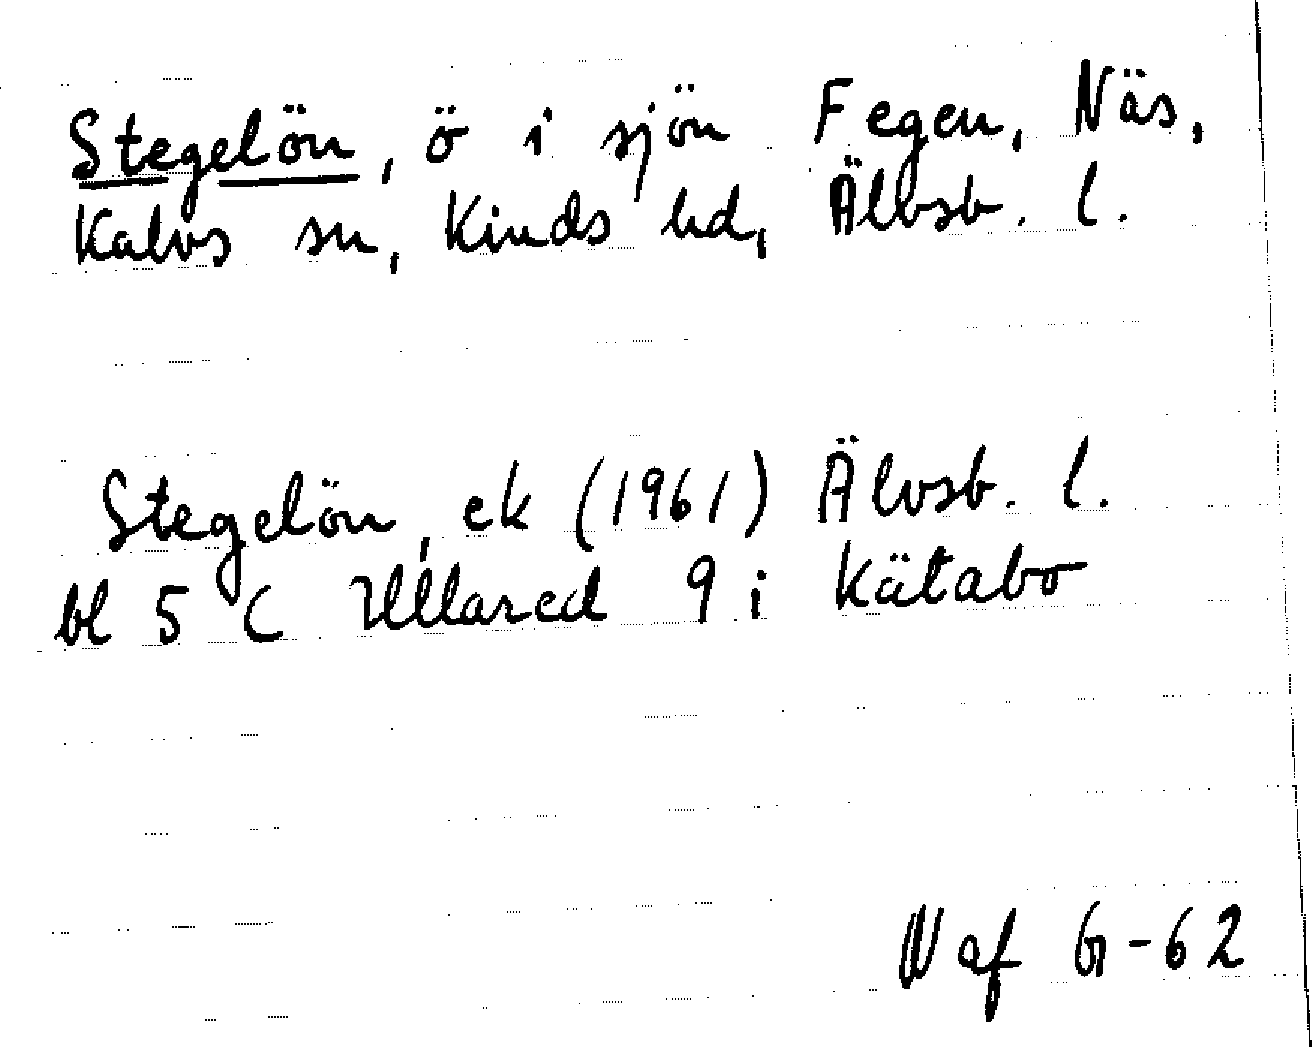 Stegelön, ö i sjön Fegen, Näs,
Kalvs sn, Kinds hd, Älvsb. l.
Stegelön, ek (1961) Älvsb. l.
bl 5 C Ullared 9 i Kätabo
N af G-62